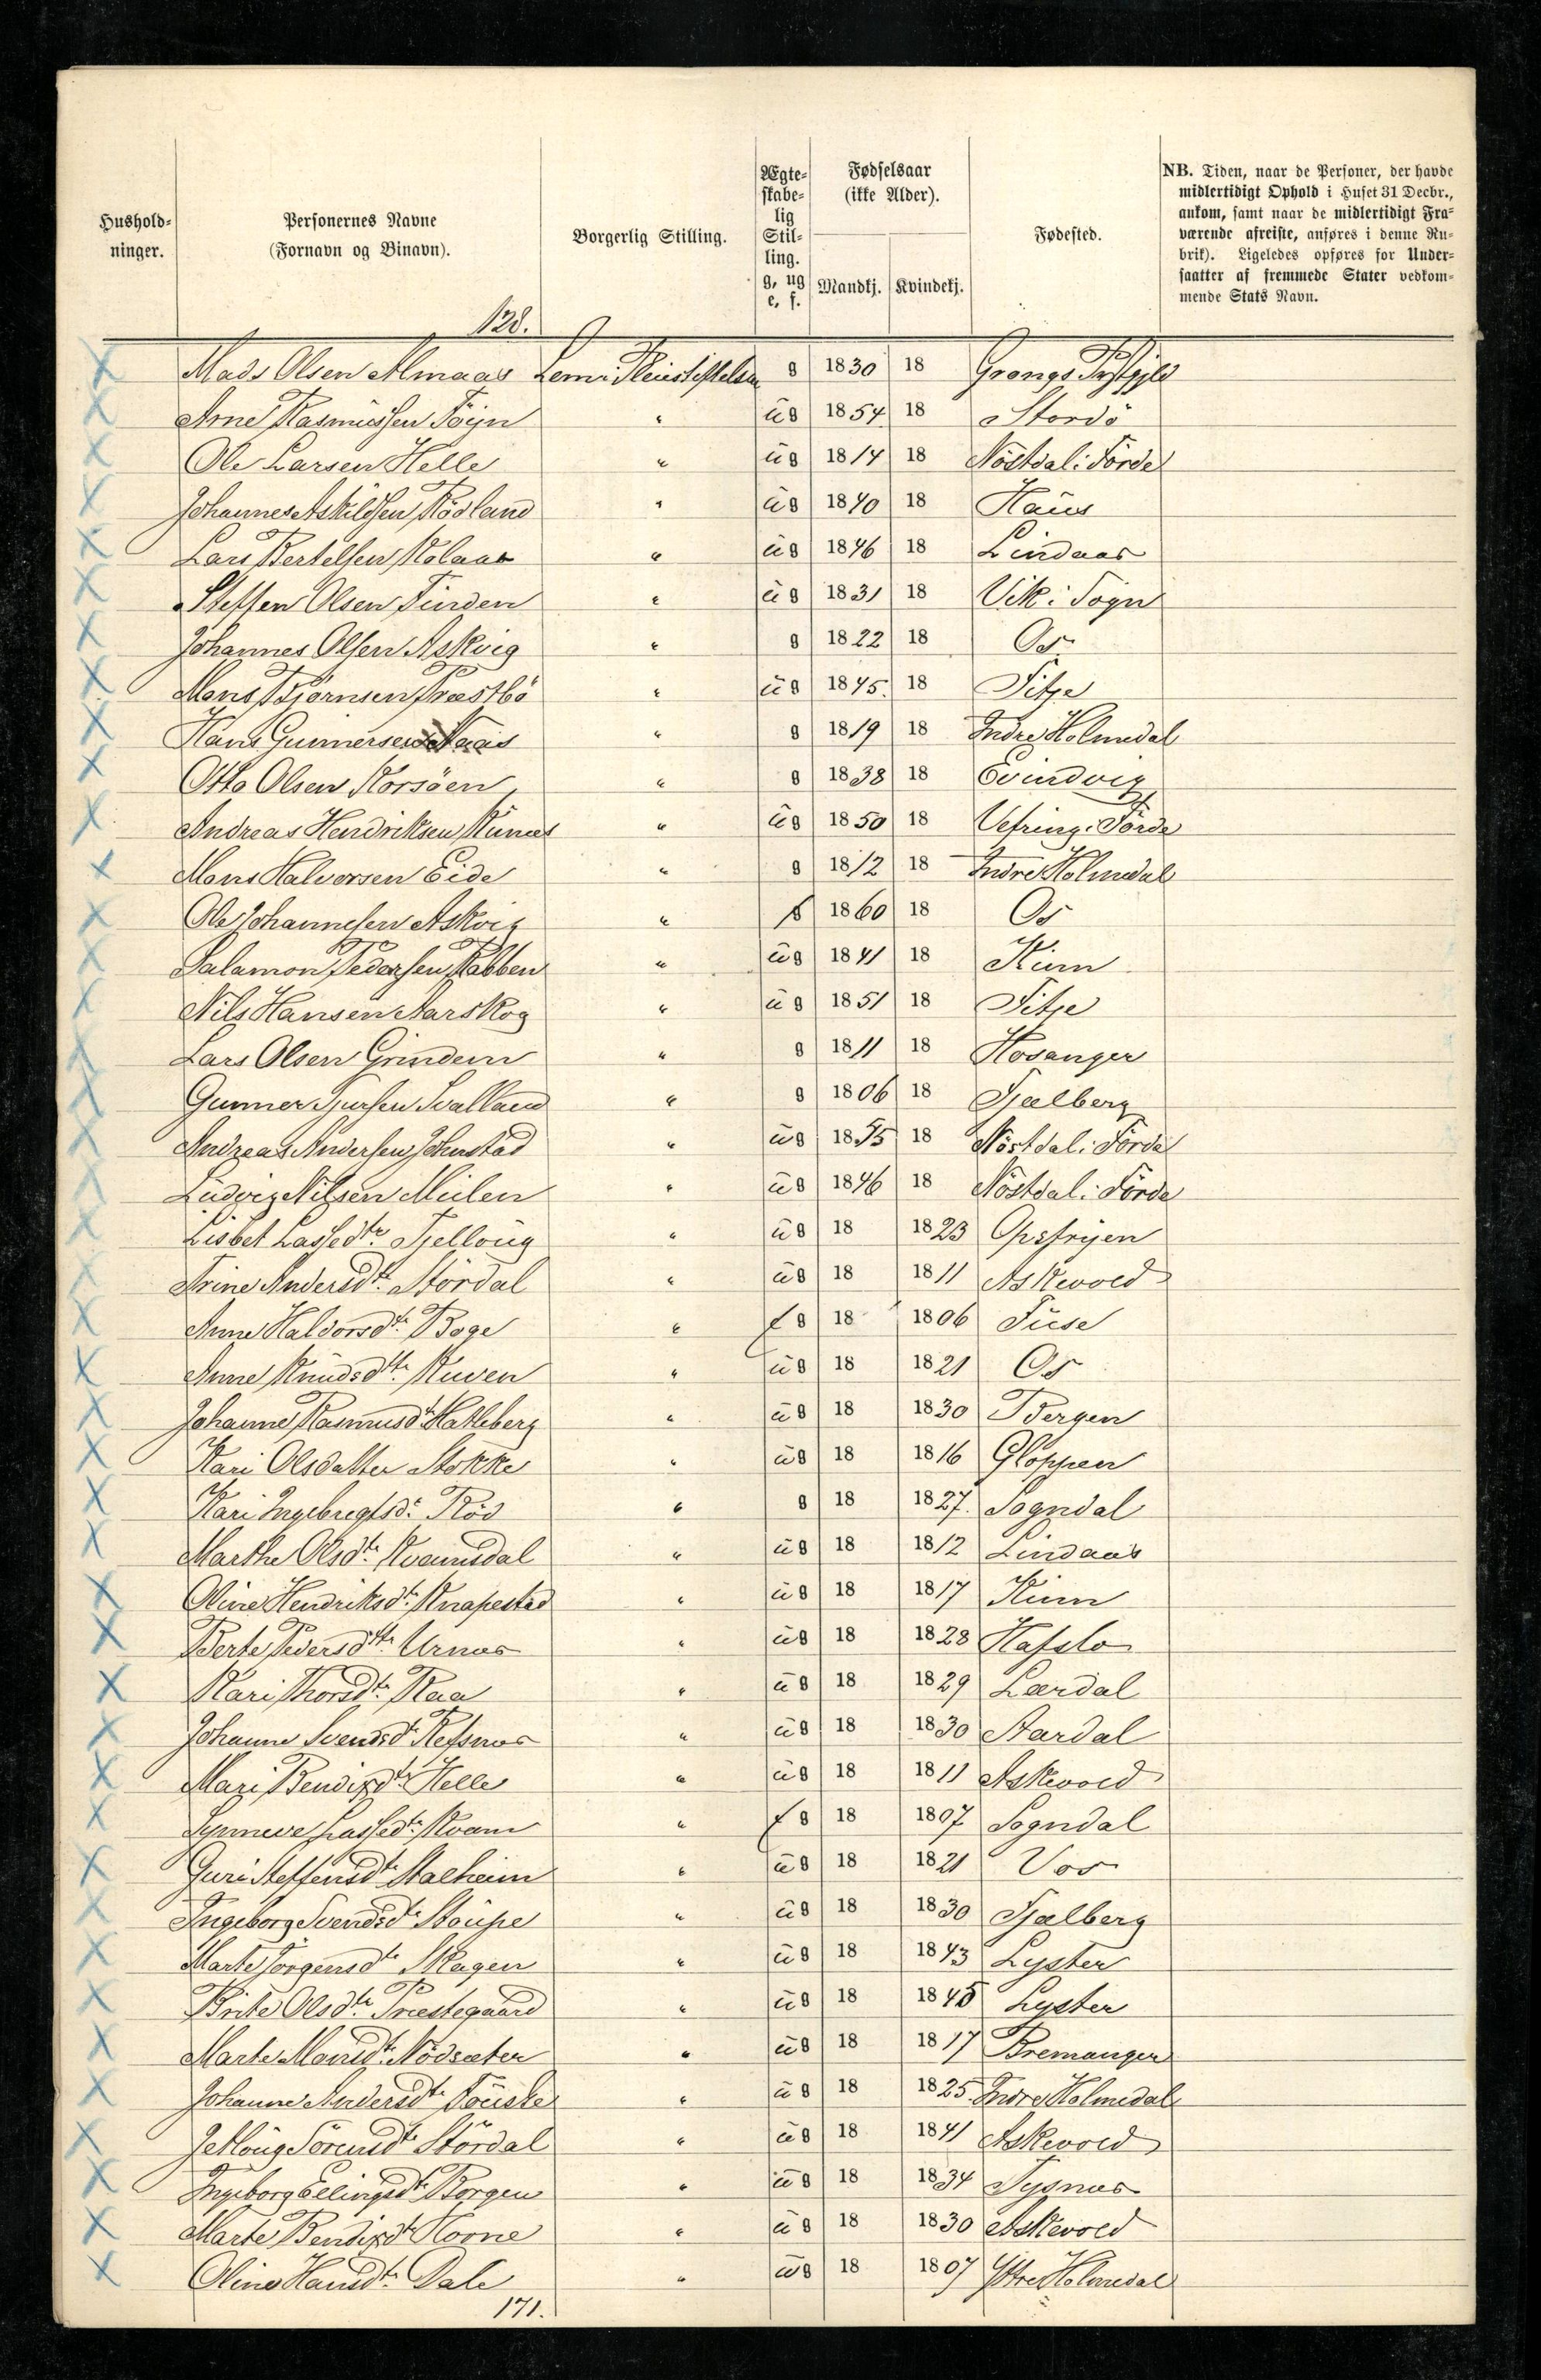 Hushold-
ninger.
Personernes Navne
(Fornavn og Binavn).
Borgerlig Stilling.
Ægte-
skabe-
lig
Stil-
ling.
g, ug
e, f.
Fødselsaar
(ikke Alder).
Mandkj.
Kvindekj.
Fødested.
NB. Tiden, naar de Personer, der havde
midlertidigt Ophold i Huset 31 Decbr.,
ankom, samt naar de midlertidigt Fra-
værende afreiste, anføres i denne Ru-
brik). Ligeledes opføres for Under-
saatter af fremmede Stater vedkom-
mende Stats Navn.
128.
Mads Olsen Almaas Lem i Pleiestiftelsen g 1830 18 Grongs Prstgjld
Arne Rasmussen Töyn " ug 1854 18 Stordö
Ole Larsen Helle " ug 1814 18 Nöstdal i Förde
Johannes Askildsen Rödland " ug 1840 18 Haus
Lars Bertelsen Kolaas " ug 1846 18 Lindaas
Steffen Olsen Finden " ug 1831 18 Vik i Sogn
Johannes Olsen Askvig " g 1822 18 Os
Mons Bjørnsen Præstbö " ug 1845 18 Fitje
Hans Gunnersen Naas " g 1819 18 Indre Holmedal
Otto Olsen Korsöen " g 1838 18 Evindvig
Andreas Hendriksen Kunæs " ug 1850 18 Vefring i Förde
Mons Halvorsen Eide " g 1812 18 Indre Holmedal
Ole Johannesen Askvig " g 1860 18 Os
Salamon Pedersen Rabben " ug 1841 18 Kinn
Nils Hansen Aarskog " ug 1851 18 Fitje
Lars Olsen Grindem " g 1811 18 Hosanger
Gunner Sjursen Svalland " g 1806 18 Fjælberg
Andreas Andersen Johnstad " ug 1855 18 Nöstdal i Förde
Ludvig Nilsen Mulen " ug 1846 18 Nöstdal i Förde
Lisbet Lassedtr Tjelloug " ug 18 1823 Opstryen
Trine Andersdtr Stördal " ug 18 1811 Askevold
Anne Haldorsdtr Boge " f g 18 1806 Fuse
Anne Knudsdtr Kuven " ug 18 1821 Os
Johanne Rasmusdtr Hatleberg " ug 18 1830 Bergen
Kari Olsdatter Stokke " ug 18 1816 Gloppen
Kari Ingebregtsd. Röd " g 18 1827 Sogndal
Marthe Olsdtr Kvamsdal " ug 18 1812 Lindaas
Oline Hendriksdtr Knapestad " ug 18 1817 Kinn
Berte Pedersdtr Urnæs " ug 18 1828 Hafslo
Kari Thorsdtr Raa " ug 18 1829 Lærdal
Johanne Svendsdtr Refsnæs " ug 18 1830 Aardal
Mari Bendixdtr Helle " ug 18 1811 Askevold
Synneve Lassedtr Kvam " f g 18 1807 Sogndal
Guri Steffensdtr Stalheim " ug 18 1821 Vos
Ingeborg Svendsdtr Stöupe " ug 18 1830 Fjælberg
Marte Jörgensdtr Skagen " ug 18 1843 Lyster
Brite Olsdtr Præstegaard " ug 18 1845 Lyster
Marte Monsdtr Nödsæter " ug 18 1817 Bremanger
Johanne Andersdtr Föuske " ug 18 1825 Indre Holmedal
Jetlöug Sörensdtr Stördal " ug 18 1841 Askevold
Ingeborg Ellingsdtr Borgen " ug 18 1834 Tysnæs
Marte Bendixdtr Horne " ug 18 1830 Askevold
Oline Hansdtr Dale " ug 18 1807 Ytre Holmedal
171.